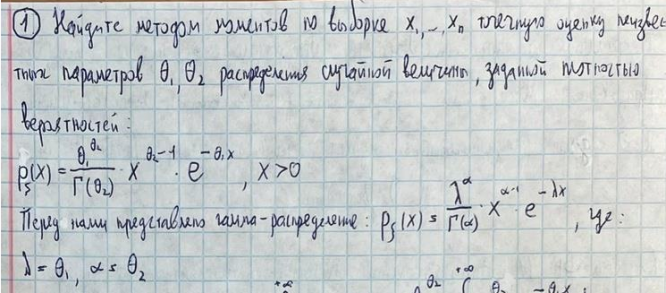 ① Найдите методом моментов по выборке x₁,..., xₙ точечную оценку неизвес-
тных параметров θ₁, θ₂ распределения случайной величины, заданной плотностью
вероятностей:
p_ξ(x) = θ₁^θ₂ / Γ(θ₂) · x^(θ₂-1) · e^(-θ₁x), x>0
Перед нами представлено гамма-распределение: p_ξ(x) = λ^α / Γ(α) · x^(α-1) · e^(-λx), где:
λ = θ₁, α = θ₂